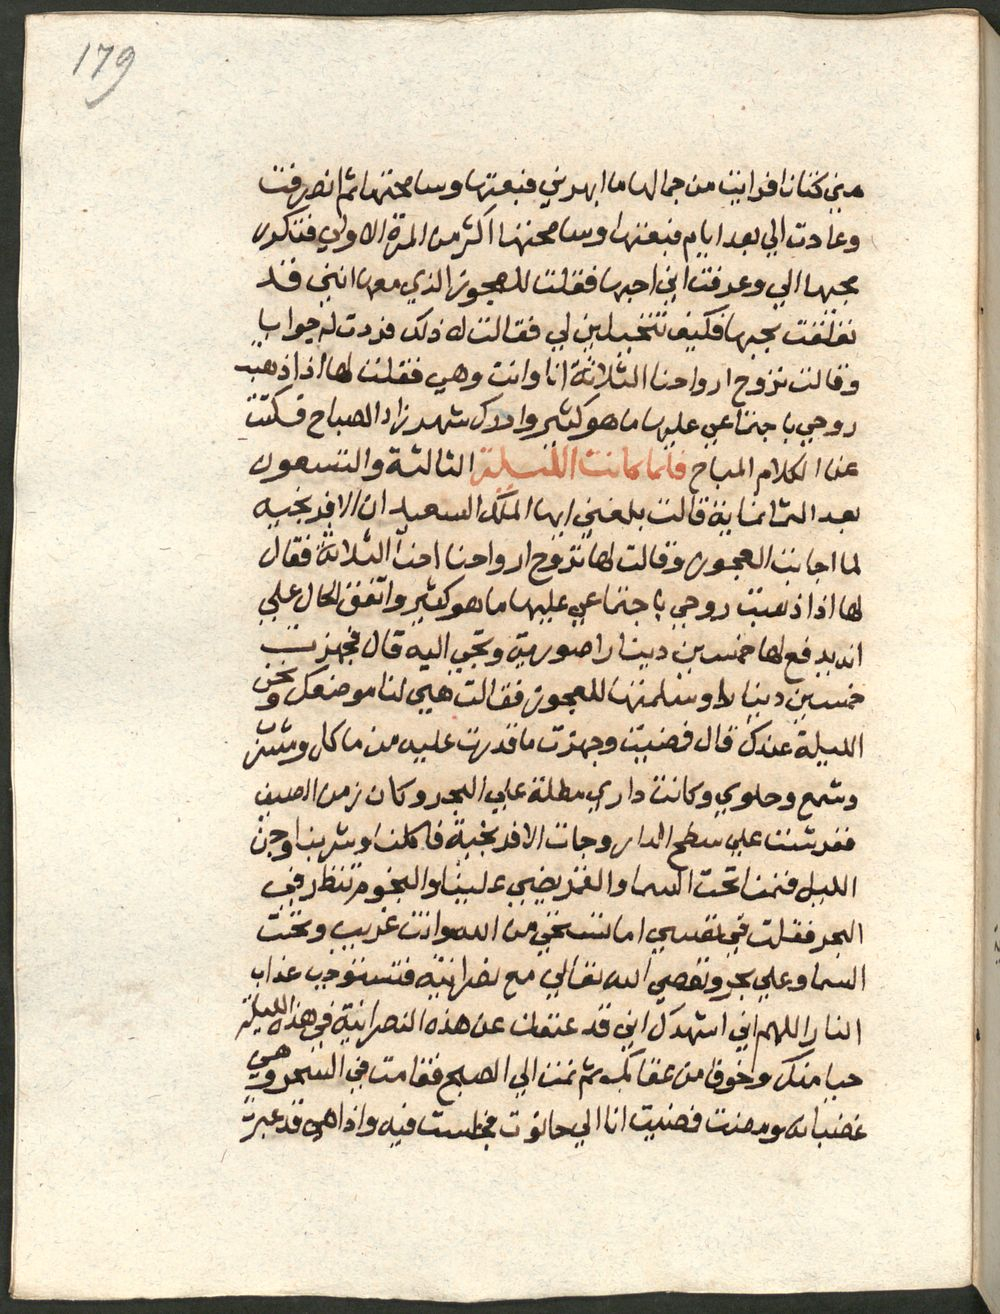 179
مني كتانا فرايت من جمالها ما ابهرني فبعتها وسامحتها ثم انصرفت
وعادت الي بعد ايام فبعتها وسامحتها اكثر من المرة الاولي فتكرر
مجيها الي وعرفت اني احبها فقلت للعجوز الذي معها انني قد
تعلقت بحبها فكيف تتحيلين لي فقالت له ذلك فردت له جوابا
وقالت تروح ارواحنا الثلاثة انا وانت وهي فقلت لها اذا ذهبت
روحي باجتماعي عليها ما هو كثير وادرك شهرزاد الصباح فسكتت
عن الكلام المباح فلما كانت الليلة الثالثة والتسعون
بعد الثمانماية قالت بلغني ايها الملك السعيد ان الافرنجيه
لما اجابت العجوز وقالت لها تروح ارواحنا احنا الثلاثة فقال
لها اذا ذهبت روحي باجتماعي عليها ما هو كثير واتفق الحال علي
انه يدفع لها خمسين دينارا صورية وتجي اليه قال فجهزت
خمسين دينارا وسلمتها للعجوز فقالت هيي لنا موضعك ونحن
الليلة عندك قال فضيت وجهزت ما قدرت عليه من ماكل ومشرب
وشمع وحلوي وكانت داري مطلة علي البحر وكان زمن الصيف
ففرشت علي سطح الدار وجات الافرنجية فاكلنا وشربنا وجن
الليل فنمنا تحت السما والقمر يضي علينا والنجوم تنظر في
البحر فقلت في نفسي اما تستحي من الله وانت غريب وتحت
السما وعلي بحر وتعصي الله تعالي مع نصرانية فتستوجب عذاب
النار اللهم اني اشهدك اني قد عففت عن هذه النصرانية في هذه الليلة
حيا منك وخوفا من عقابك ثم نمت الي الصبح فقامت في السحر وهي
غضبانه ومضت فضيت انا الي حانوت فجلست فيه واذا هي قد عبرت